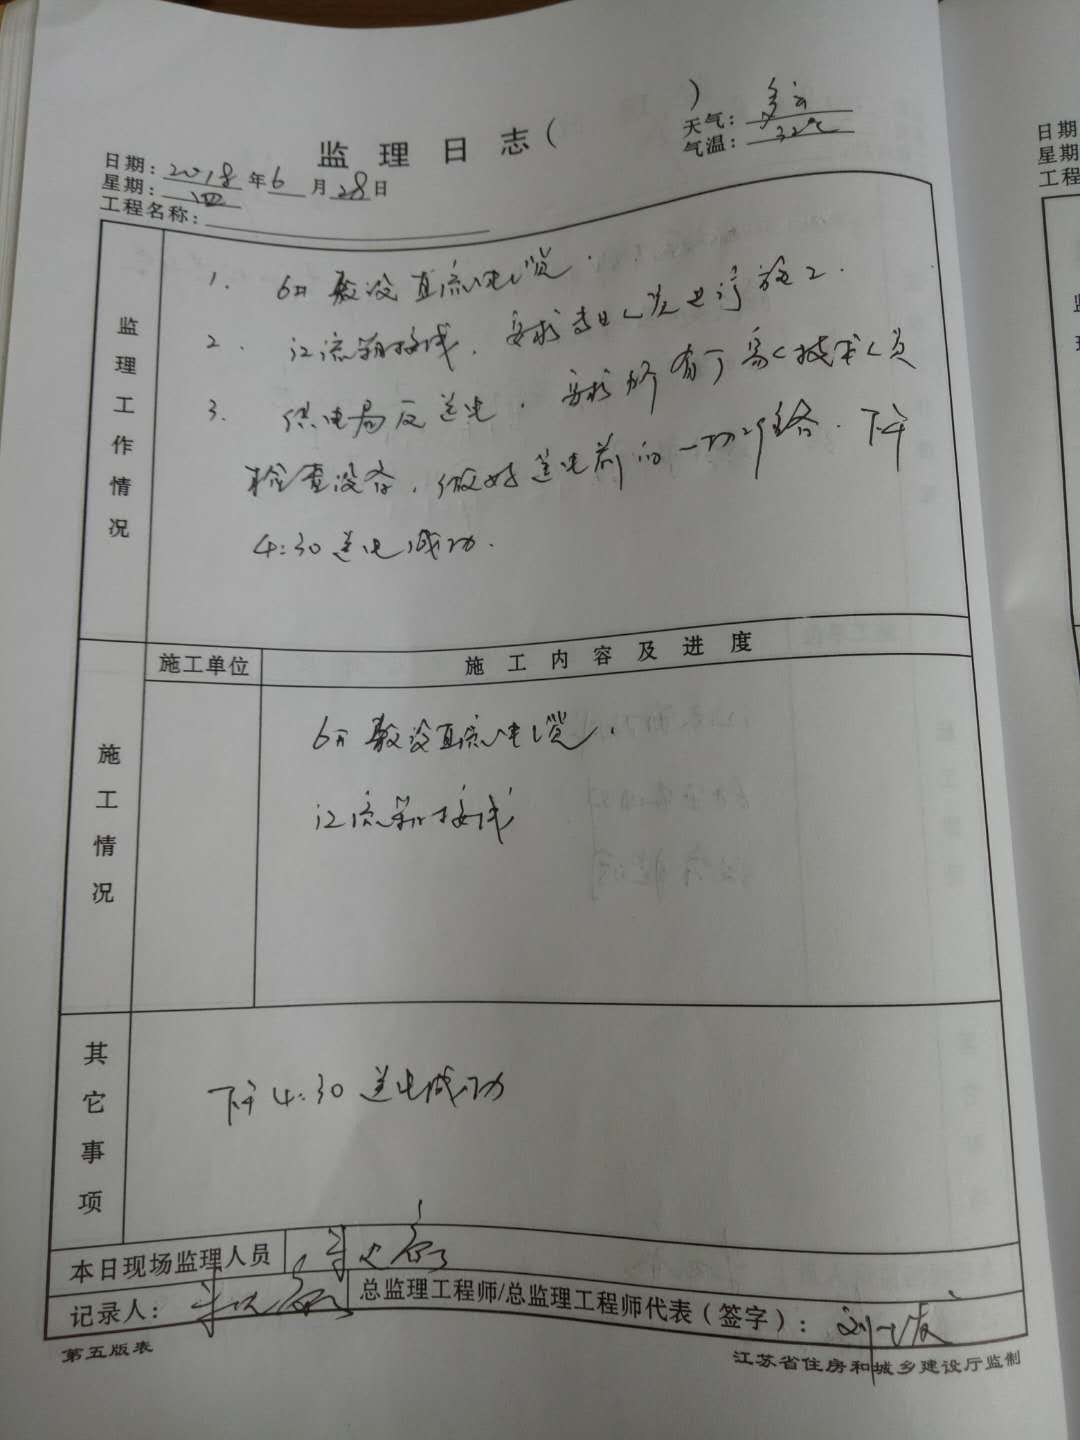 监理日志( )
天气：多云
气温：32℃
日期：2018年6月28日
星期：四
工程名称：
监理工作情况
1. 6# 敷设直流电缆.
2. 汇流箱接线, 要求专业人员进行施工.
3. 供电局反送电, 要求所有厂家技术人员
检查设备, 做好送电前的一切准备. 下午
4:30 送电成功.
施工情况
施工单位 施工内容及进度
6# 敷设直流电缆.
汇流箱接线
其它事项
下午 4:30 送电成功
本日现场监理人员
记录人：
总监理工程师/总监理工程师代表（签字）：
第五版表
江苏省住房和城乡建设厅监制
日期
星期
工程